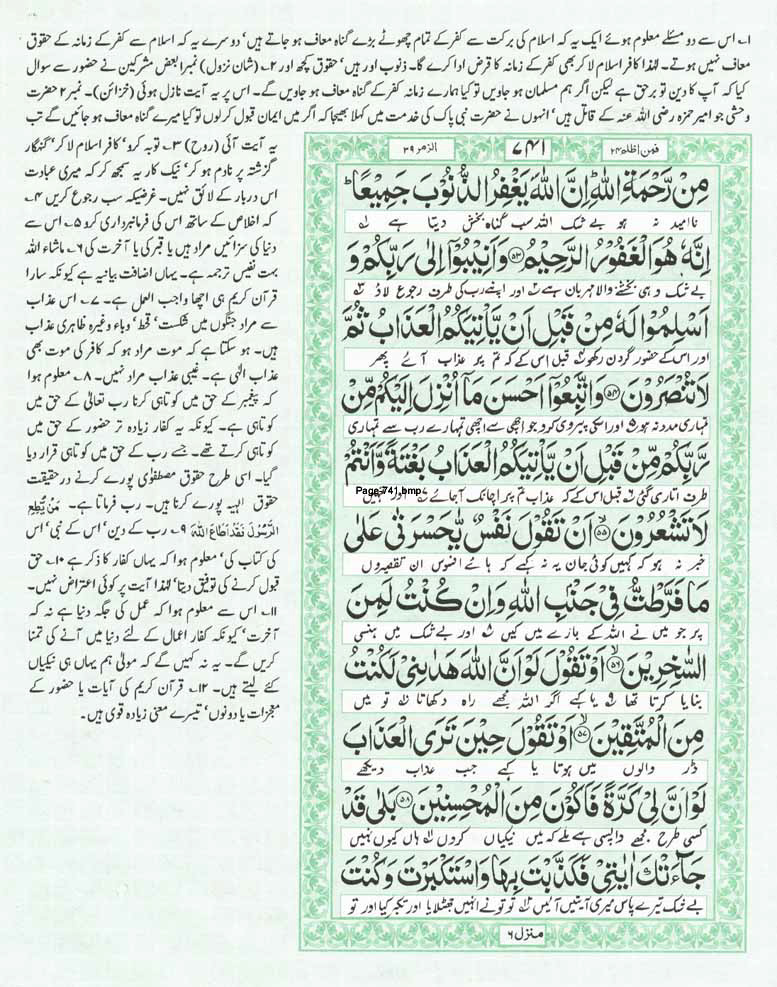 ۱۔ اس سے دو مسئلے معلوم ہوئے ایک یہ کہ اسلام کی برکت سے کفر کے تمام چھوٹے بڑے گناہ معاف ہو جاتے ہیں' دوسرے یہ کہ اسلام سے کفر کے زمانہ کے حقوق
معاف نہیں ہوتے۔ لہٰذا کافر اسلام لا کر بھی کفر کے زمانہ کا قرض ادا کرے گا۔ ذنوب اور ہیں' حقوق کچھ اور ۲۔ (شان نزول) نمبر۱ بعض مشرکین نے حضور سے سوال
کیا کہ آپ کا دین تو برحق ہے لیکن اگر ہم مسلمان ہو جاویں تو کیا ہمارے زمانہ کفر کے گناہ معاف ہو جاویں گے۔ اس پر یہ آیت نازل ہوئی (خزائن)۔ نمبر ۲ حضرت
وحشی جو امیر حمزہ رضی اللہ عنہ کے قاتل ہیں' انہوں نے حضرت نبی پاک کی خدمت میں کہلا بھیجا کہ اگر میں ایمان قبول کر لوں تو کیا میرے گناہ معاف ہو جائیں گے تب
یہ آیت آئی (روح) ۳۔ توبہ کرو' کافر اسلام لا کر' گنہگار
گزشتہ پر نادم ہو کر' نیک کار یہ سمجھ کر کہ میری عبادت
اس دربار کے لائق نہیں۔ غرضیکہ سب رجوع کریں ۴۔
کہ اخلاص کے ساتھ اس کی فرمانبرداری کرو ۵۔ اس سے
دنیا کی سزائیں مراد ہیں یا قبر کی یا آخرت کی ۶۔ ماشاء اللہ
بہت نفیس ترجمہ ہے۔ یہاں اضافت بیانیہ ہے کیونکہ سارا
قرآن کریم ہی اچھا واجب العمل ہے۔ ۷۔ اس عذاب
سے مراد جنگوں میں شکست' قحط' وباء وغیرہ ظاہری عذاب
ہیں۔ ہو سکتا ہے کہ موت مراد ہو کہ کافر کی موت بھی
عذاب الٰہی ہے۔ غیبی عذاب مراد نہیں۔ ۸۔ معلوم ہوا
کہ پیغمبر کے حق میں کوتاہی کرنا رب تعالیٰ کے حق میں
کوتاہی ہے۔ کیونکہ یہ کفار زیادہ تر حضور کے حق میں
کوتاہی کرتے تھے۔ جسے رب کے حق میں کوتاہی قرار دیا
گیا۔ اسی طرح حقوق مصطفوی پورے کرنا در حقیقت
حقوق الہیہ پورے کرنا ہیں۔ رب فرماتا ہے۔ مَنْ يُّطِعِ
الرَّسُوْلَ فَقَدْ اَطَاعَ اللهَ ۹۔ رب کے دین' اس کے نبی' اس
کی کتاب کی' معلوم ہوا کہ یہاں کفار کا ذکر ہے ۱۰۔ حق
قبول کرنے کی توفیق دیتا' لہٰذا آیت پر کوئی اعتراض نہیں۔
۱۱۔ اس سے معلوم ہوا کہ عمل کی جگہ دنیا ہے نہ کہ
آخرت' کیونکہ کفار اعمال کے لئے دنیا میں آنے کی تمنا
کریں گے۔ یہ نہ کہیں گے کہ مولیٰ ہم یہاں ہی نیکیاں
کئے لیتے ہیں۔ ۱۲۔ قرآن کریم کی آیات یا حضور کے
معجزات یا دونوں' تیسرے معنی زیادہ قوی ہیں۔
فمن اظلم ۲۴ ۷۴۱ الزمر ۳۹
مِنْ رَّحْمَةِ اللّٰهِ ؕ اِنَّ اللّٰهَ يَغْفِرُ الذُّنُوْبَ جَمِيْعًا ؕ
ناامید نہ ہو بے شک اللہ سب گناہ بخش دیتا ہے
اِنَّهٗ هُوَ الْغَفُوْرُ الرَّحِيْمُ ﴿۵۳﴾ وَاَنِيْبُوْۤا اِلٰى رَبِّكُمْ وَ
بے شک وہی بخشنے والا مہربان ہے اور اپنے رب کی طرف رجوع لاؤ
اَسْلِمُوْا لَهٗ مِنْ قَبْلِ اَنْ يَّاْتِيَكُمُ الْعَذَابُ ثُمَّ
اور اس کے حضور گردن رکھو قبل اس کے کہ تم پر عذاب آئے پھر
لَا تُنْصَرُوْنَ ﴿۵۴﴾ وَاتَّبِعُوْۤا اَحْسَنَ مَاۤ اُنْزِلَ اِلَيْكُمْ مِّنْ
تمہاری مدد نہ ہو اور اسکی پیروی کرو جو اچھی سے اچھی تمہارے رب سے تمہاری
رَّبِّكُمْ مِّنْ قَبْلِ اَنْ يَّاْتِيَكُمُ الْعَذَابُ بَغْتَةً وَّاَنْتُمْ
Page-741.bmp
طرف اتاری گئی قبل اس کے کہ عذاب تم پر اچانک آجائے اور تمہیں
لَا تَشْعُرُوْنَ ﴿۵۵﴾ اَنْ تَقُوْلَ نَفْسٌ يّٰحَسْرَتٰى عَلٰى
خبر نہ ہو کہ کہیں کوئی جان یہ نہ کہے کہ ہائے افسوس ان تقصیروں
مَا فَرَّطْتُّ فِيْ جَنْۢبِ اللّٰهِ وَاِنْ كُنْتُ لَمِنَ
پر جو میں نے اللہ کے بارے میں کیں اور بے شک میں ہنسی
السّٰخِرِيْنَ ﴿۵۶﴾ اَوْ تَقُوْلَ لَوْ اَنَّ اللّٰهَ هَدٰىنِيْ لَكُنْتُ
بنایا کرتا تھا یا کہے اگر اللہ مجھے راہ دکھاتا تو میں
مِنَ الْمُتَّقِيْنَ ﴿۵۷﴾ اَوْ تَقُوْلَ حِيْنَ تَرَى الْعَذَابَ
ڈر والوں میں ہوتا یا کہے جب عذاب دیکھے
لَوْ اَنَّ لِيْ كَرَّةً فَاَكُوْنَ مِنَ الْمُحْسِنِيْنَ ﴿۵۸﴾ بَلٰى قَدْ
کسی طرح مجھے واپسی ملے کہ میں نیکیاں کروں ہاں کیوں نہیں
جَآءَتْكَ اٰيٰتِيْ فَكَذَّبْتَ بِهَا وَاسْتَكْبَرْتَ وَكُنْتَ
بے شک تیرے پاس میری آیتیں آئیں تو تو نے انہیں جھٹلایا اور تکبر کیا اور تو
منزل ۶